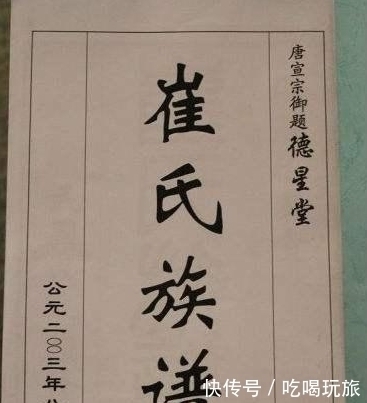 唐宣宗御题德星堂
崔氏族谱
公元二〇〇三年
快传号 / 吃喝玩旅